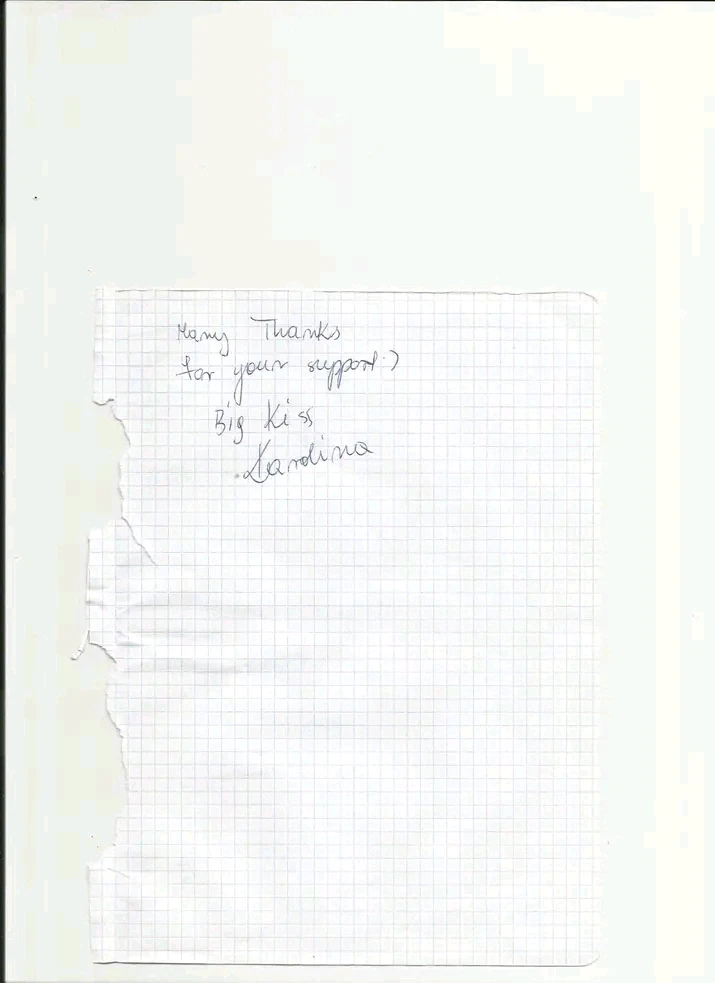 Many Thanks
for your support :)
Big Kiss
Karolina